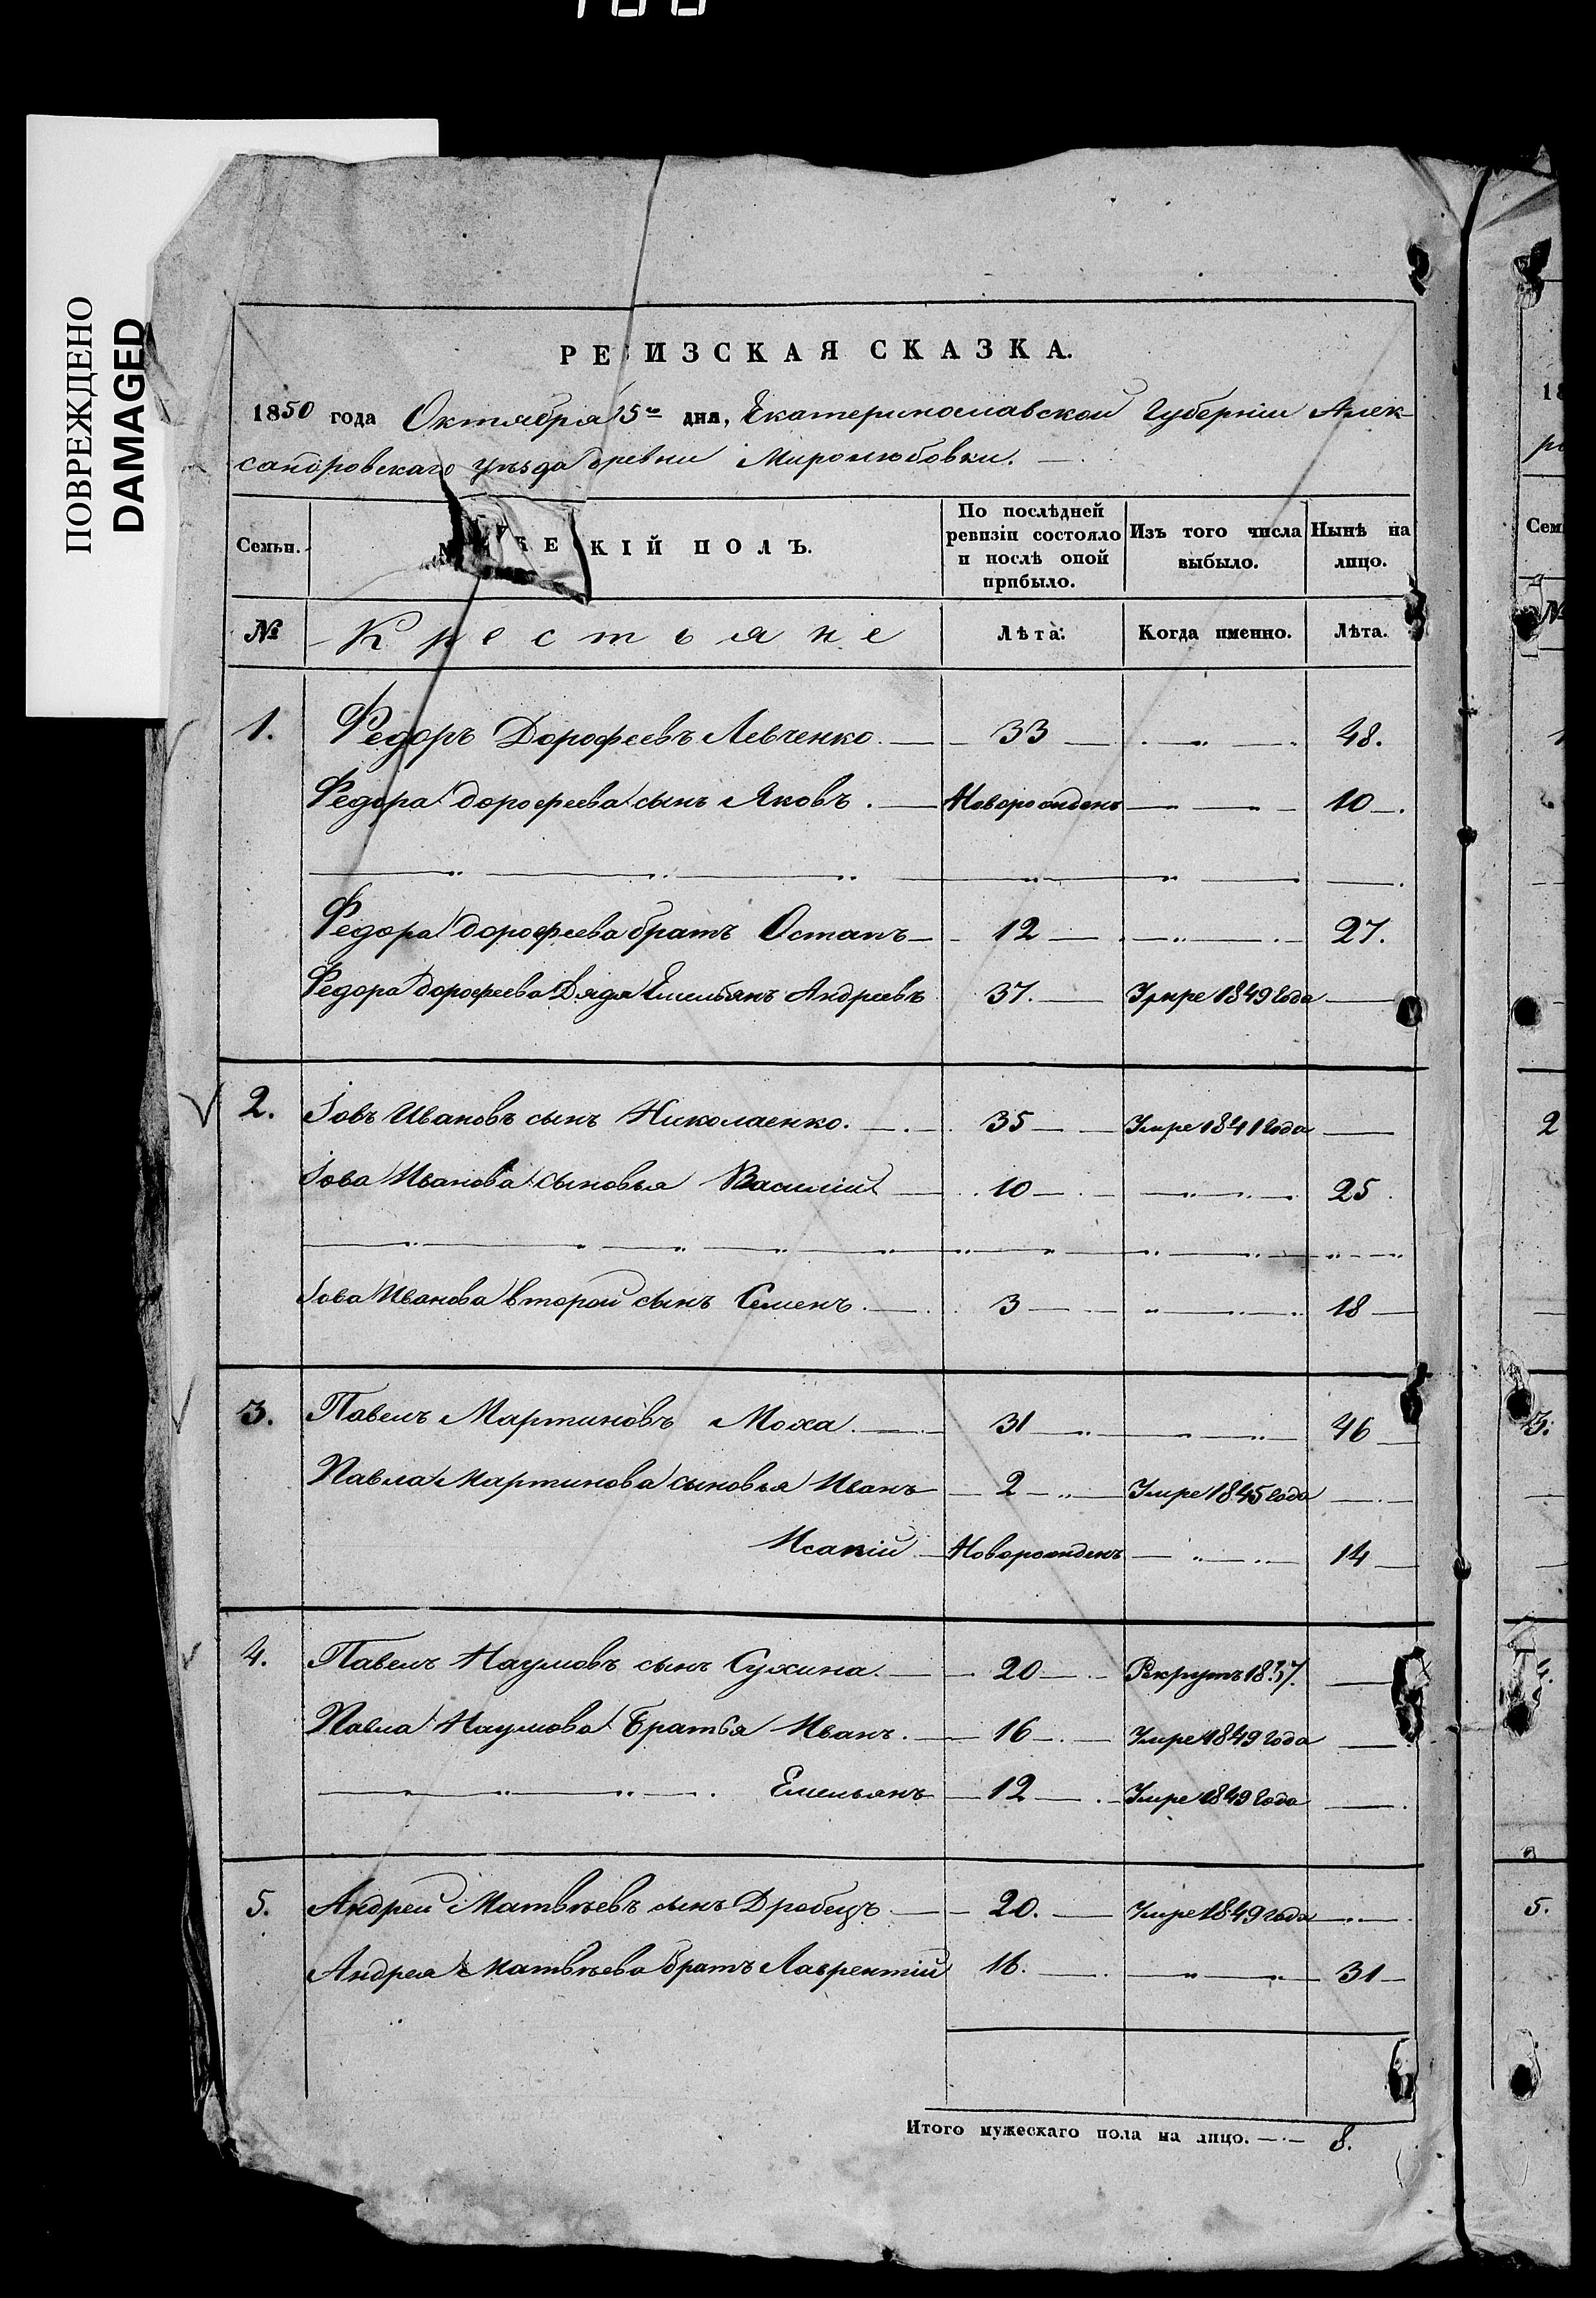 ПОВРЕЖДЕНО
DAMAGED
РЕВИЗСКАЯ СКАЗКА.
1850 года Октября 15го дня, Екатеринославской Губерніи Алек-
сандровскаго уѣзда древни Миролюбовки.
Семьи. МУЖЕСКІЙ ПОЛЪ. По послѣдней ревизіи состояло и послѣ оной прибыло. Изъ того числа выбыло. Нынѣ на лицо.
№ Крестьяне Лѣта. Когда именно. Лѣта.
1. Федоръ Дорофеевъ Левченко. 33 48.
Федора Дорофеева сынъ Яковъ. Новорожденъ 10
Федора Дорофеева братъ Остапъ 12 27.
Федора Дорофеева Дядя Емельянъ Андреевъ 37. Умре 1849 года
2. Іовъ Ивановъ сынъ Николаенко. 35 Умре 1841 года
Іова Иванова сыновья Василій 10 25
Іова Иванова второй сынъ Семенъ. 3 18
3. Павелъ Мартиновъ Моха. 31 46
Павла Мартинова сыновья Иванъ 2 Умре 1845 года
Исакій Новорожденъ 14
4. Павелъ Наумовъ сынъ Сухина. 20 Рекрутъ 1837.
Павла Наумова Братья Иванъ. 16 Умре 1849 года
Емельянъ 12 Умре 1849 года
5. Андрей Матвѣевъ сынъ Дробецъ 20. Умре 1849 года
Андрея Матвѣева братъ Лаврентій 16. 31
Итого мужескаго пола на лицо. 8.